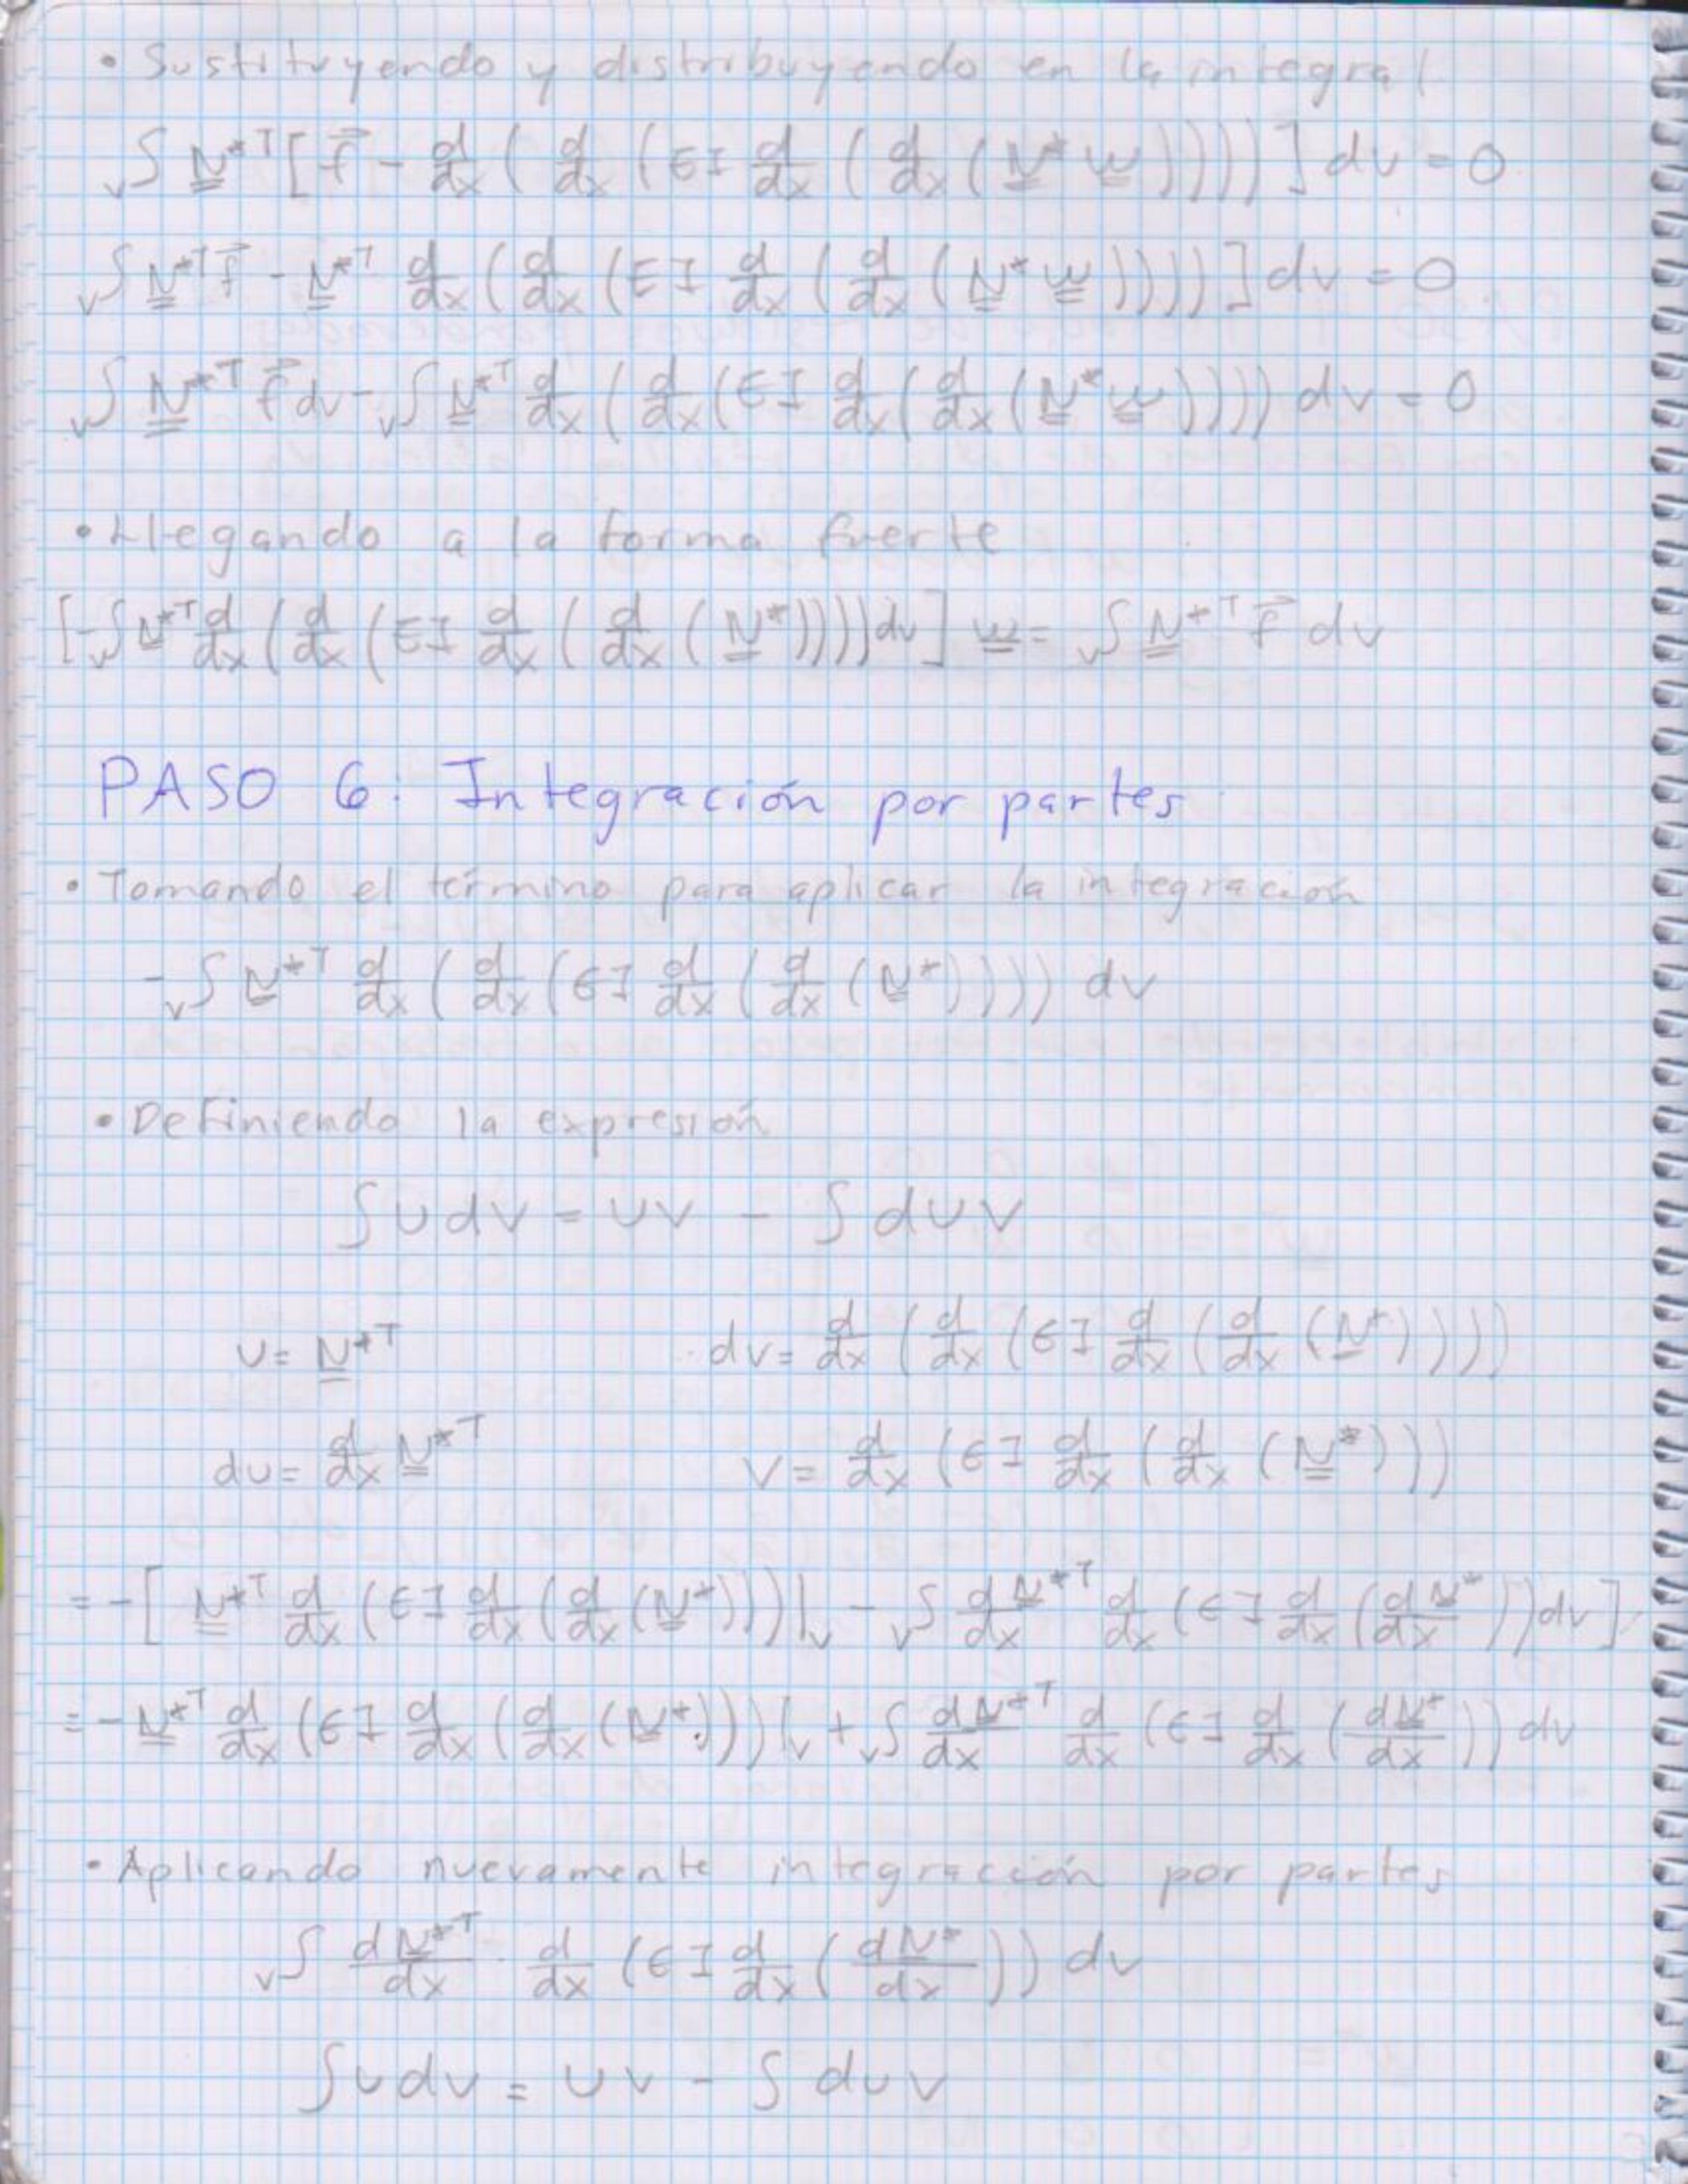 • Sustituyendo y distribuyendo en la integral
∫_V N̳*ᵀ [ f⃗ - d/dx ( d/dx ( EI d/dx ( d/dx ( N̳* w̳ )))) ] dv = 0
∫_V N̳*ᵀ f⃗ - N̳*ᵀ d/dx ( d/dx ( EI d/dx ( d/dx ( N̳* w̳ )))) ] dv = 0
∫_V N̳*ᵀ f⃗ dv - ∫_V N̳*ᵀ d/dx ( d/dx ( EI d/dx ( d/dx ( N̳* w̳ )))) dv = 0
• Llegando a la forma fuerte
[ -∫_V N̳*ᵀ d/dx ( d/dx ( EI d/dx ( d/dx ( N̳* )))) dv ] w̳ = ∫_V N̳*ᵀ f⃗ dv
PASO 6: Integración por partes
• Tomando el término para aplicar la integración
- ∫_V N̳*ᵀ d/dx ( d/dx ( EI d/dx ( d/dx ( N̳* )))) dv
• Definiendo la expresión
∫ u dv = uv - ∫ du v
u = N̳*ᵀ dv = d/dx ( d/dx ( EI d/dx ( d/dx ( N̳* ))))
du = d/dx N̳*ᵀ v = d/dx ( EI d/dx ( d/dx ( N̳* )))
= - [ N̳*ᵀ d/dx ( EI d/dx ( d/dx ( N̳* ))) |_V - ∫_V dN̳*ᵀ/dx d/dx ( EI d/dx ( dN̳*/dx )) dv ]
= - N̳*ᵀ d/dx ( EI d/dx ( d/dx ( N̳* ))) |_V + ∫_V dN̳*ᵀ/dx d/dx ( EI d/dx ( dN̳*/dx )) dv
• Aplicando nuevamente integración por partes
∫_V dN̳*ᵀ/dx d/dx ( EI d/dx ( dN̳*/dx )) dv
∫ u dv = uv - ∫ du v